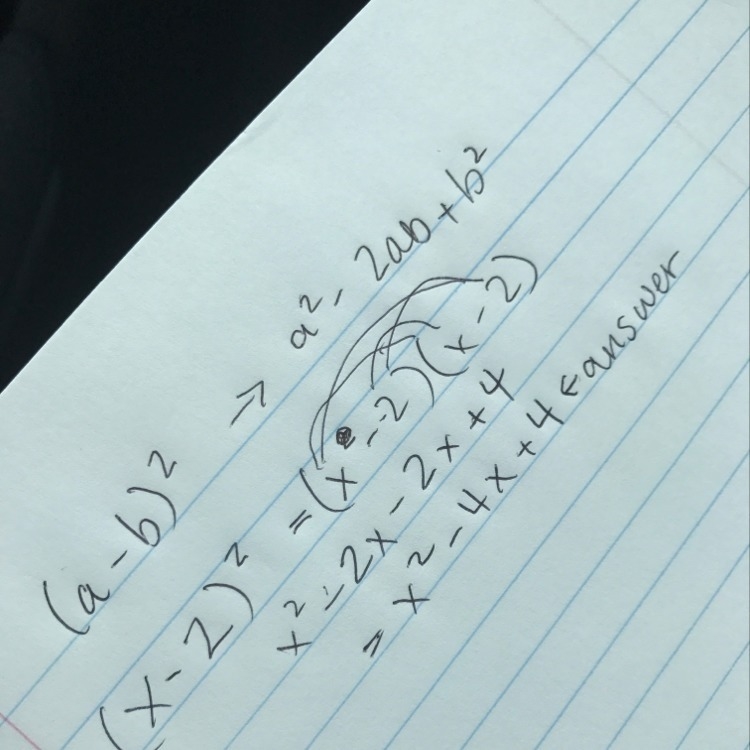 (a-b)² → a² - 2ab + b²
(x-2)² = (x - 2)(x - 2)
x² - 2x - 2x + 4
= x² - 4x + 4 ← answer